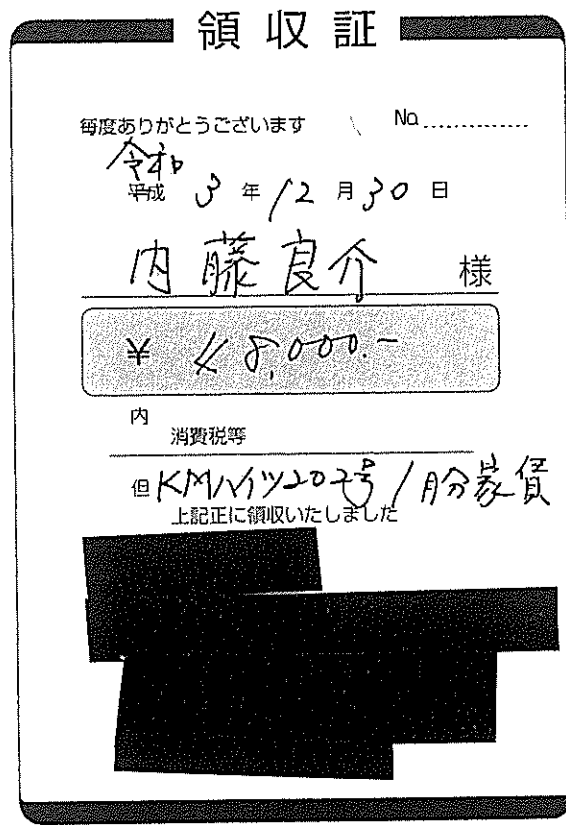 領収証
毎度ありがとうございます No.
令和
平成 3 年 12 月 30 日
内藤良介 様
¥ 48,000.-
内
消費税等
但 KMハイツ202号 1月分家賃
上記正に領収いたしました